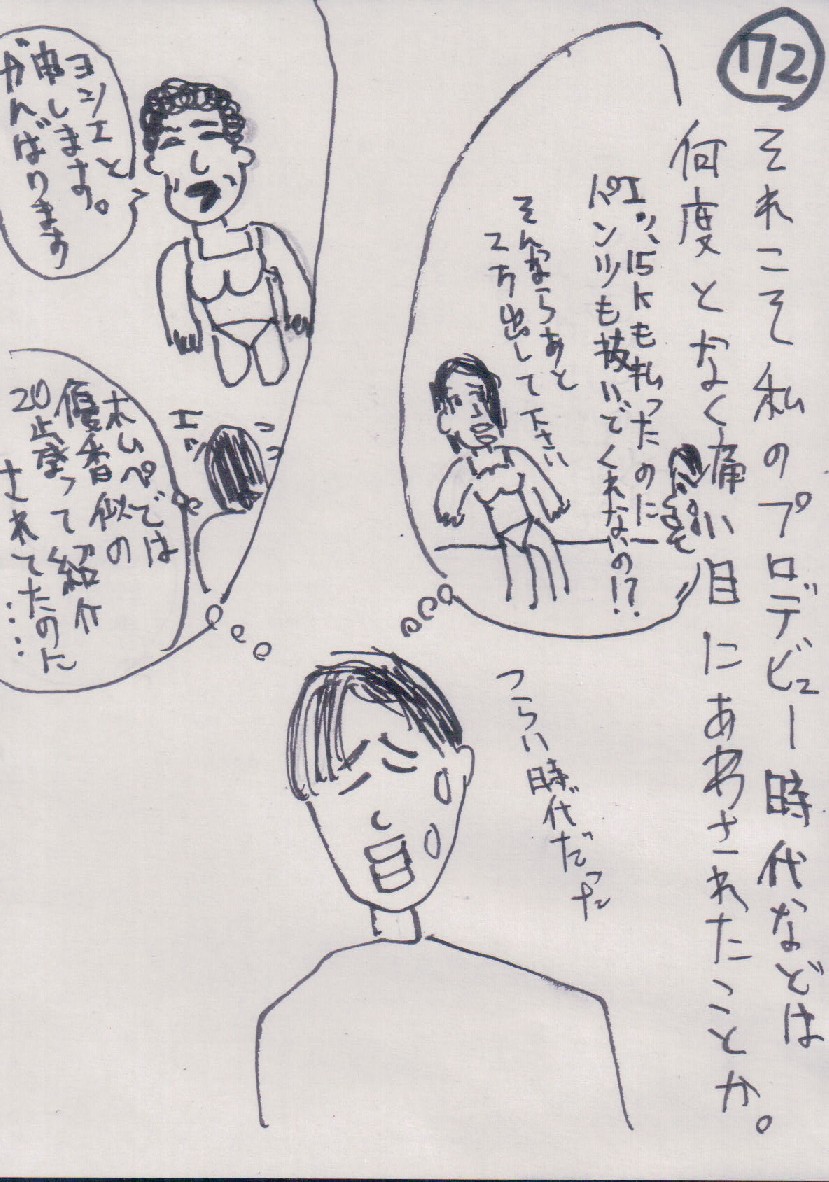 172
それこそ私のプロデビュー時代などは
何度となく痛い目にあわされたことか。
エッ、15kも払ったのに
パンツも抜いでくれないの!?
そんならあと
2万出して下さい
つらい時代だった
ヨシエと
申します。
がんばります
エッ
ホムペでは
優香似の
20歳って紹介
されてたのに……